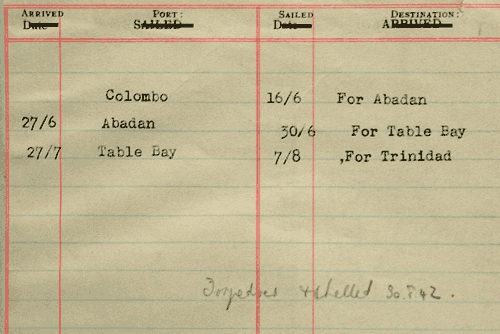 ARRIVED PORT: SAILED DESTINATION:
Date SAILED Date ARRIVED
Colombo 16/6 For Abadan
27/6 Abadan 30/6 For Table Bay
27/7 Table Bay 7/8 ,For Trinidad
Torpedoed & shelled 30.8.42.